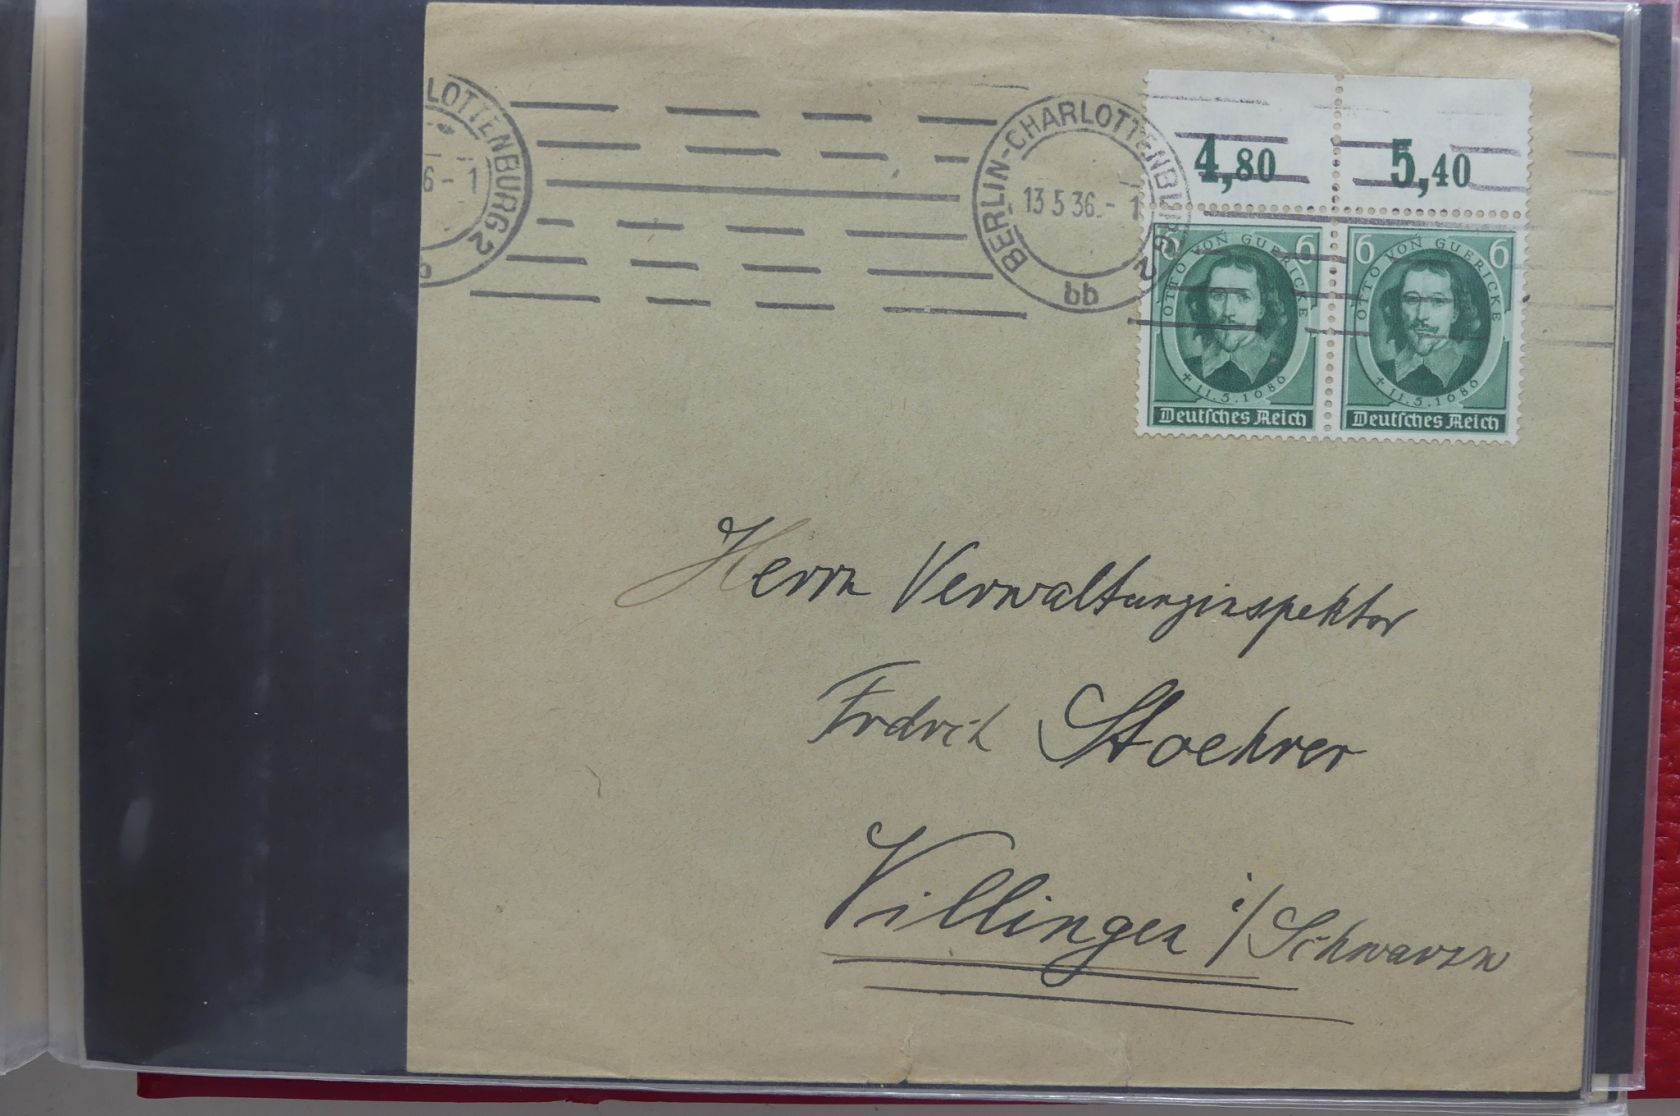 LOTTENBURG 2
6 - 1
b
BERLIN-CHARLOTTENBURG 2
13 5 36. - 1
bb
4,80
5,40
6 6
OTTO VON GUERICKE
+ 11.5.1686
Deutsches Reich
6 6
OTTO VON GUERICKE
+ 11.5.1686
Deutsches Reich
Herrn Verwaltunginspektor
Frdrich Stoehrer
Villingen i/Schwarzw